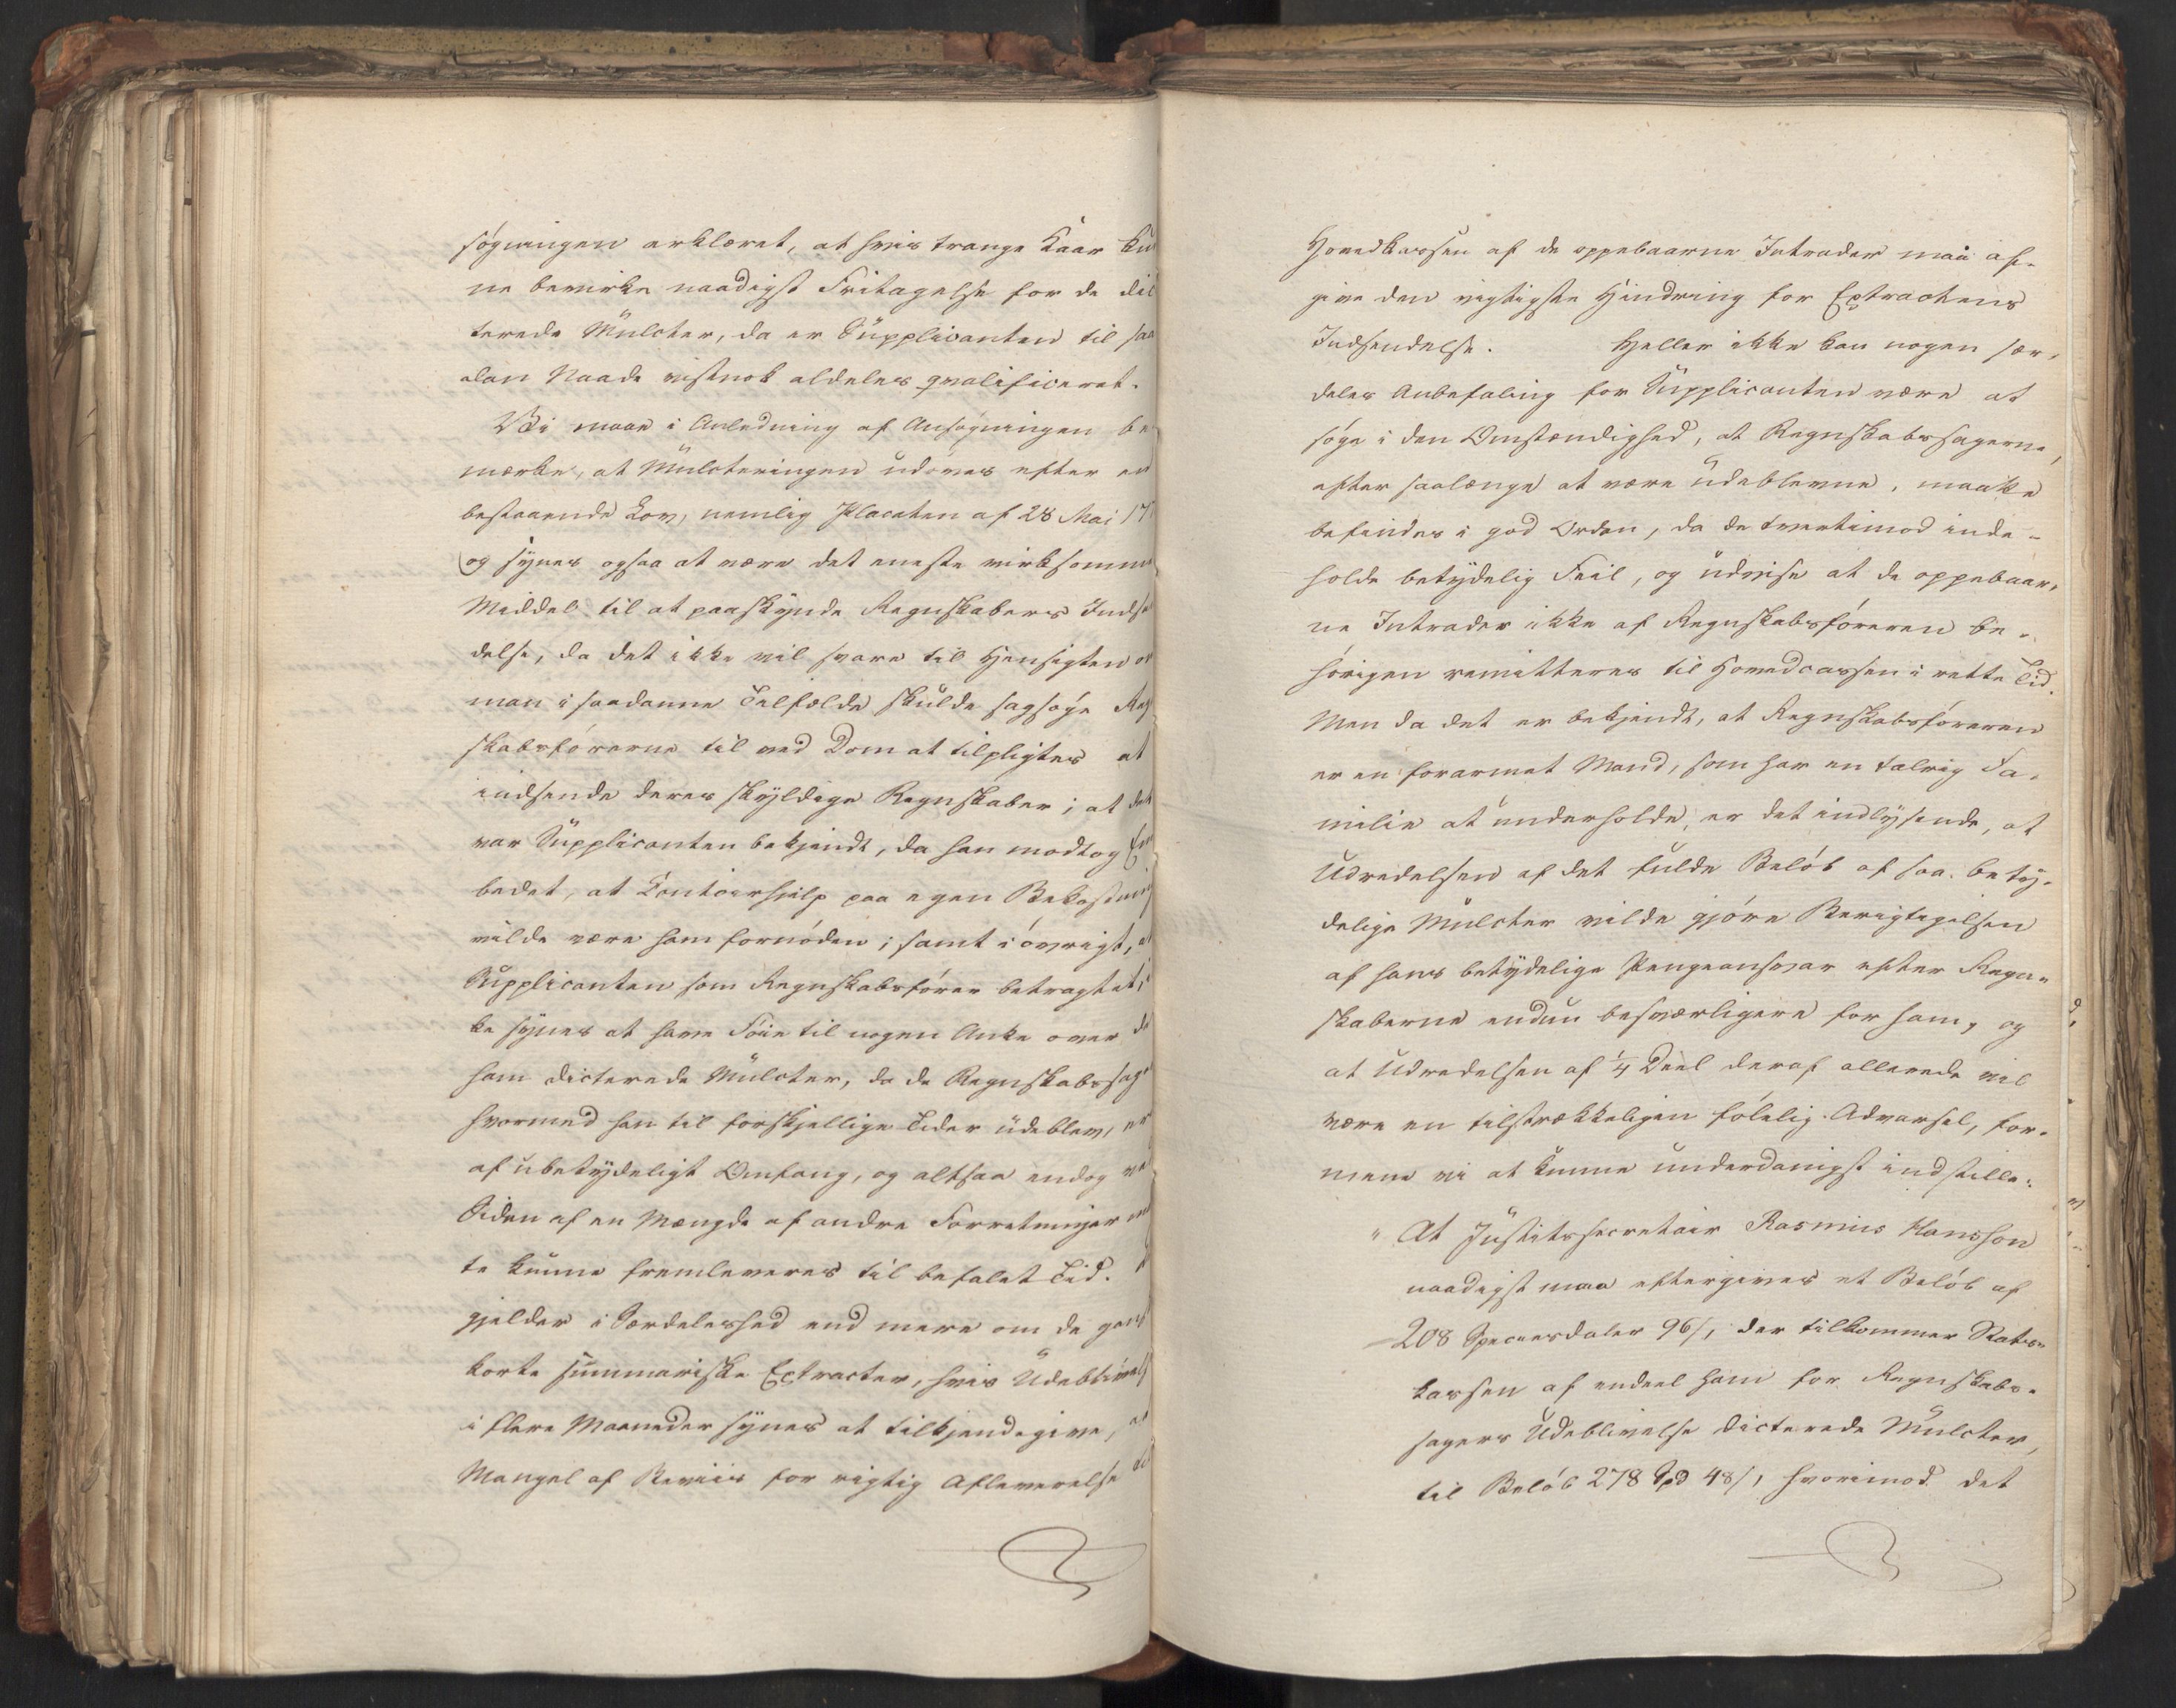 søgningen erklæret, at hvis trange Kaar kun
ne bevirke naadigst Fritagelse for de dic
terede Mulcter, da er Supplicanten til saa
dan Naade vistnok aldeles qvalificeret.
Vi maae i Anledning af Ansøgningen be
mærke, at Mulcteringen udøves efter en
bestaaende Lov, nemlig Placaten af 28 Mai 17
og synes ogsaa at være det eneste virksomme
Middel til at paaskynde Regnskabers Indsen
delse, da det ikke vil svare til Hensigten om
man i saadanne Tilfælde skulde sagsøge Regn
skabsførerne til ved Dom at tilpligtes at
indsende deres skyldige Regnskaber; at det
var Supplicanten bekjendt, da han modtog Em
bedet, at Contoirhjelp paa egen Bekostning
vilde være ham fornøden; samt i øvrigt, at
Supplicanten som Regnskabsfører betragtet, i
ke synes at have Føie til nogen Anke over de
ham dicterede Mulcter, da de Regnskabssager
hvormed han til forskjellige Tider udeblev, er
af ubetydeligt Omfang, og altsaa endog ved
Siden af en Mængde af andre Forretninger maa
te kunne fremleveres til befalet Tid.
gjelder i Særdeleshed end mere om de ganske
korte summariske Extracter, hvis Udeblivelse
i flere Maaneder synes at tilkjendegive, at
Mangel af Beviis for rigtig Afleverelse til
Hovedkassen af de oppebaarne Intrader maa af-
give den vigtigste Hindring for Extractens
Indsendelse. Heller ikke kan nogen sær-
deles Anbefaling for Supplicanten være at
søge i den Omstændighed, at Regnskabssagerne,
efter saalænge at være udeblevne, maatte
befindes i god Orden, da de tvertimod inde-
holde betydelig Feil, og udvise at de oppebaar-
ne Intrader ikke af Regnskabsføreren be-
hørigen remitteres til Hovedcassen i rette Tid.
Men da det er bekjendt, at Regnskabsføreren
er en forarmet Mand, som har en talrig Fa-
milie at underholde, er det indlysende, at
Udredelsen af det fulde Beløb af saa bety-
delige Mulcter vilde gjøre Berigtigelsen
af hans betydelige Pengeansvar efter Regn-
skaberne endnu besværligere for ham, og
at Udredelsen af 1/4 Deel deraf allerede vil
være en tilstrækkeligen følelig Advarsel, for-
mene vi at kunne underdanigst indstille:
" At Justitssecretair Rasmus Hansson
naadigst maa eftergives et Beløb af
208 Speciesdaler 96/, der tilkommer Stats-
kassen af endeel ham for Regnskabs-
sagers Udeblivelse dicterede Mulcter,
til Beløb 278 Spd 48/, hvorimod det